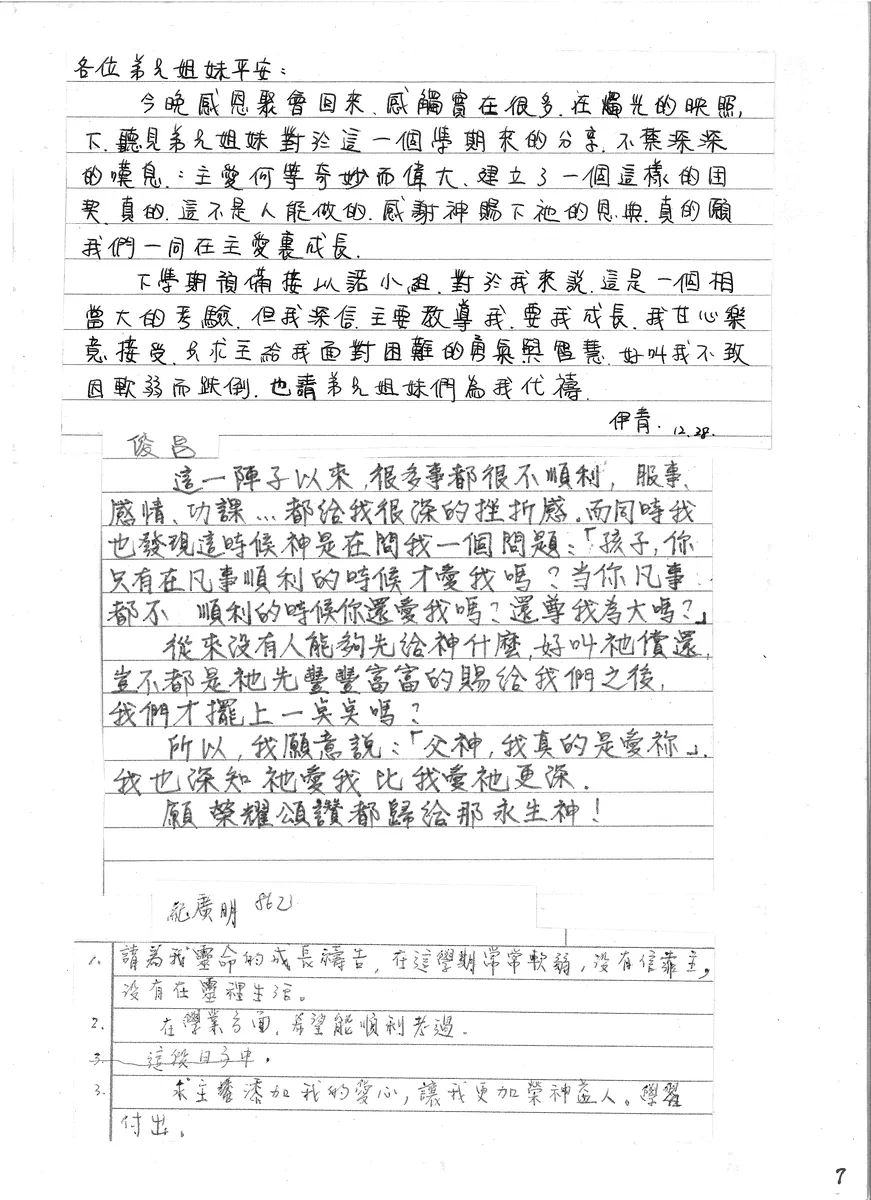 各位弟兄姐妹平安：
今晚感恩聚會回來，感觸實在很多，在燭光的映照，
下，聽見弟兄姐妹對於這一個學期來的分享，不禁深深
的嘆息，：主愛何等奇妙而偉大，建立了一個這樣的団
契，真的，這不是人能做的，感謝神賜下祂的恩典，真的願
我們一同在主愛裏成長。
下學期預備接以諾小組，對於我來說，這是一個相
當大的考驗，但我深信，主要教導我，要我成長，我甘心樂
意接受，只求主給我面對困難的勇氣與智慧，好叫我不致
因軟弱而跌倒，也請弟兄姐妹們為我代禱。
伊青. 12.28.
俊呂
這一陣子以來，很多事都很不順利，服事、
感情、功課…都給我很深的挫折感。而同時我
也發現這時候神是在問我一個問題：「孩子，你
只有在凡事順利的時候才愛我嗎？当你凡事
都不 順利的時候你還愛我嗎？還尊我為大嗎？」
從來沒有人能夠先給神什麼，好叫祂償還，
豈不都是祂先豐豐富富的賜給我們之後，
我們才擺上一點點嗎？
所以，我願意說：「父神，我真的是愛祢」.
我也深知祂愛我比我愛祂更深.
願榮耀頌讚都歸給那永生神！
廣明
1. 請為我靈命的成長禱告，在這學期常常軟弱，沒有信靠主，
沒有在靈裡生活。
2. 在學業方面，希望能順利考過.
3 這段日子中，
3. 求主添加我的愛心，讓我更加榮神益人。學習
付出。
7